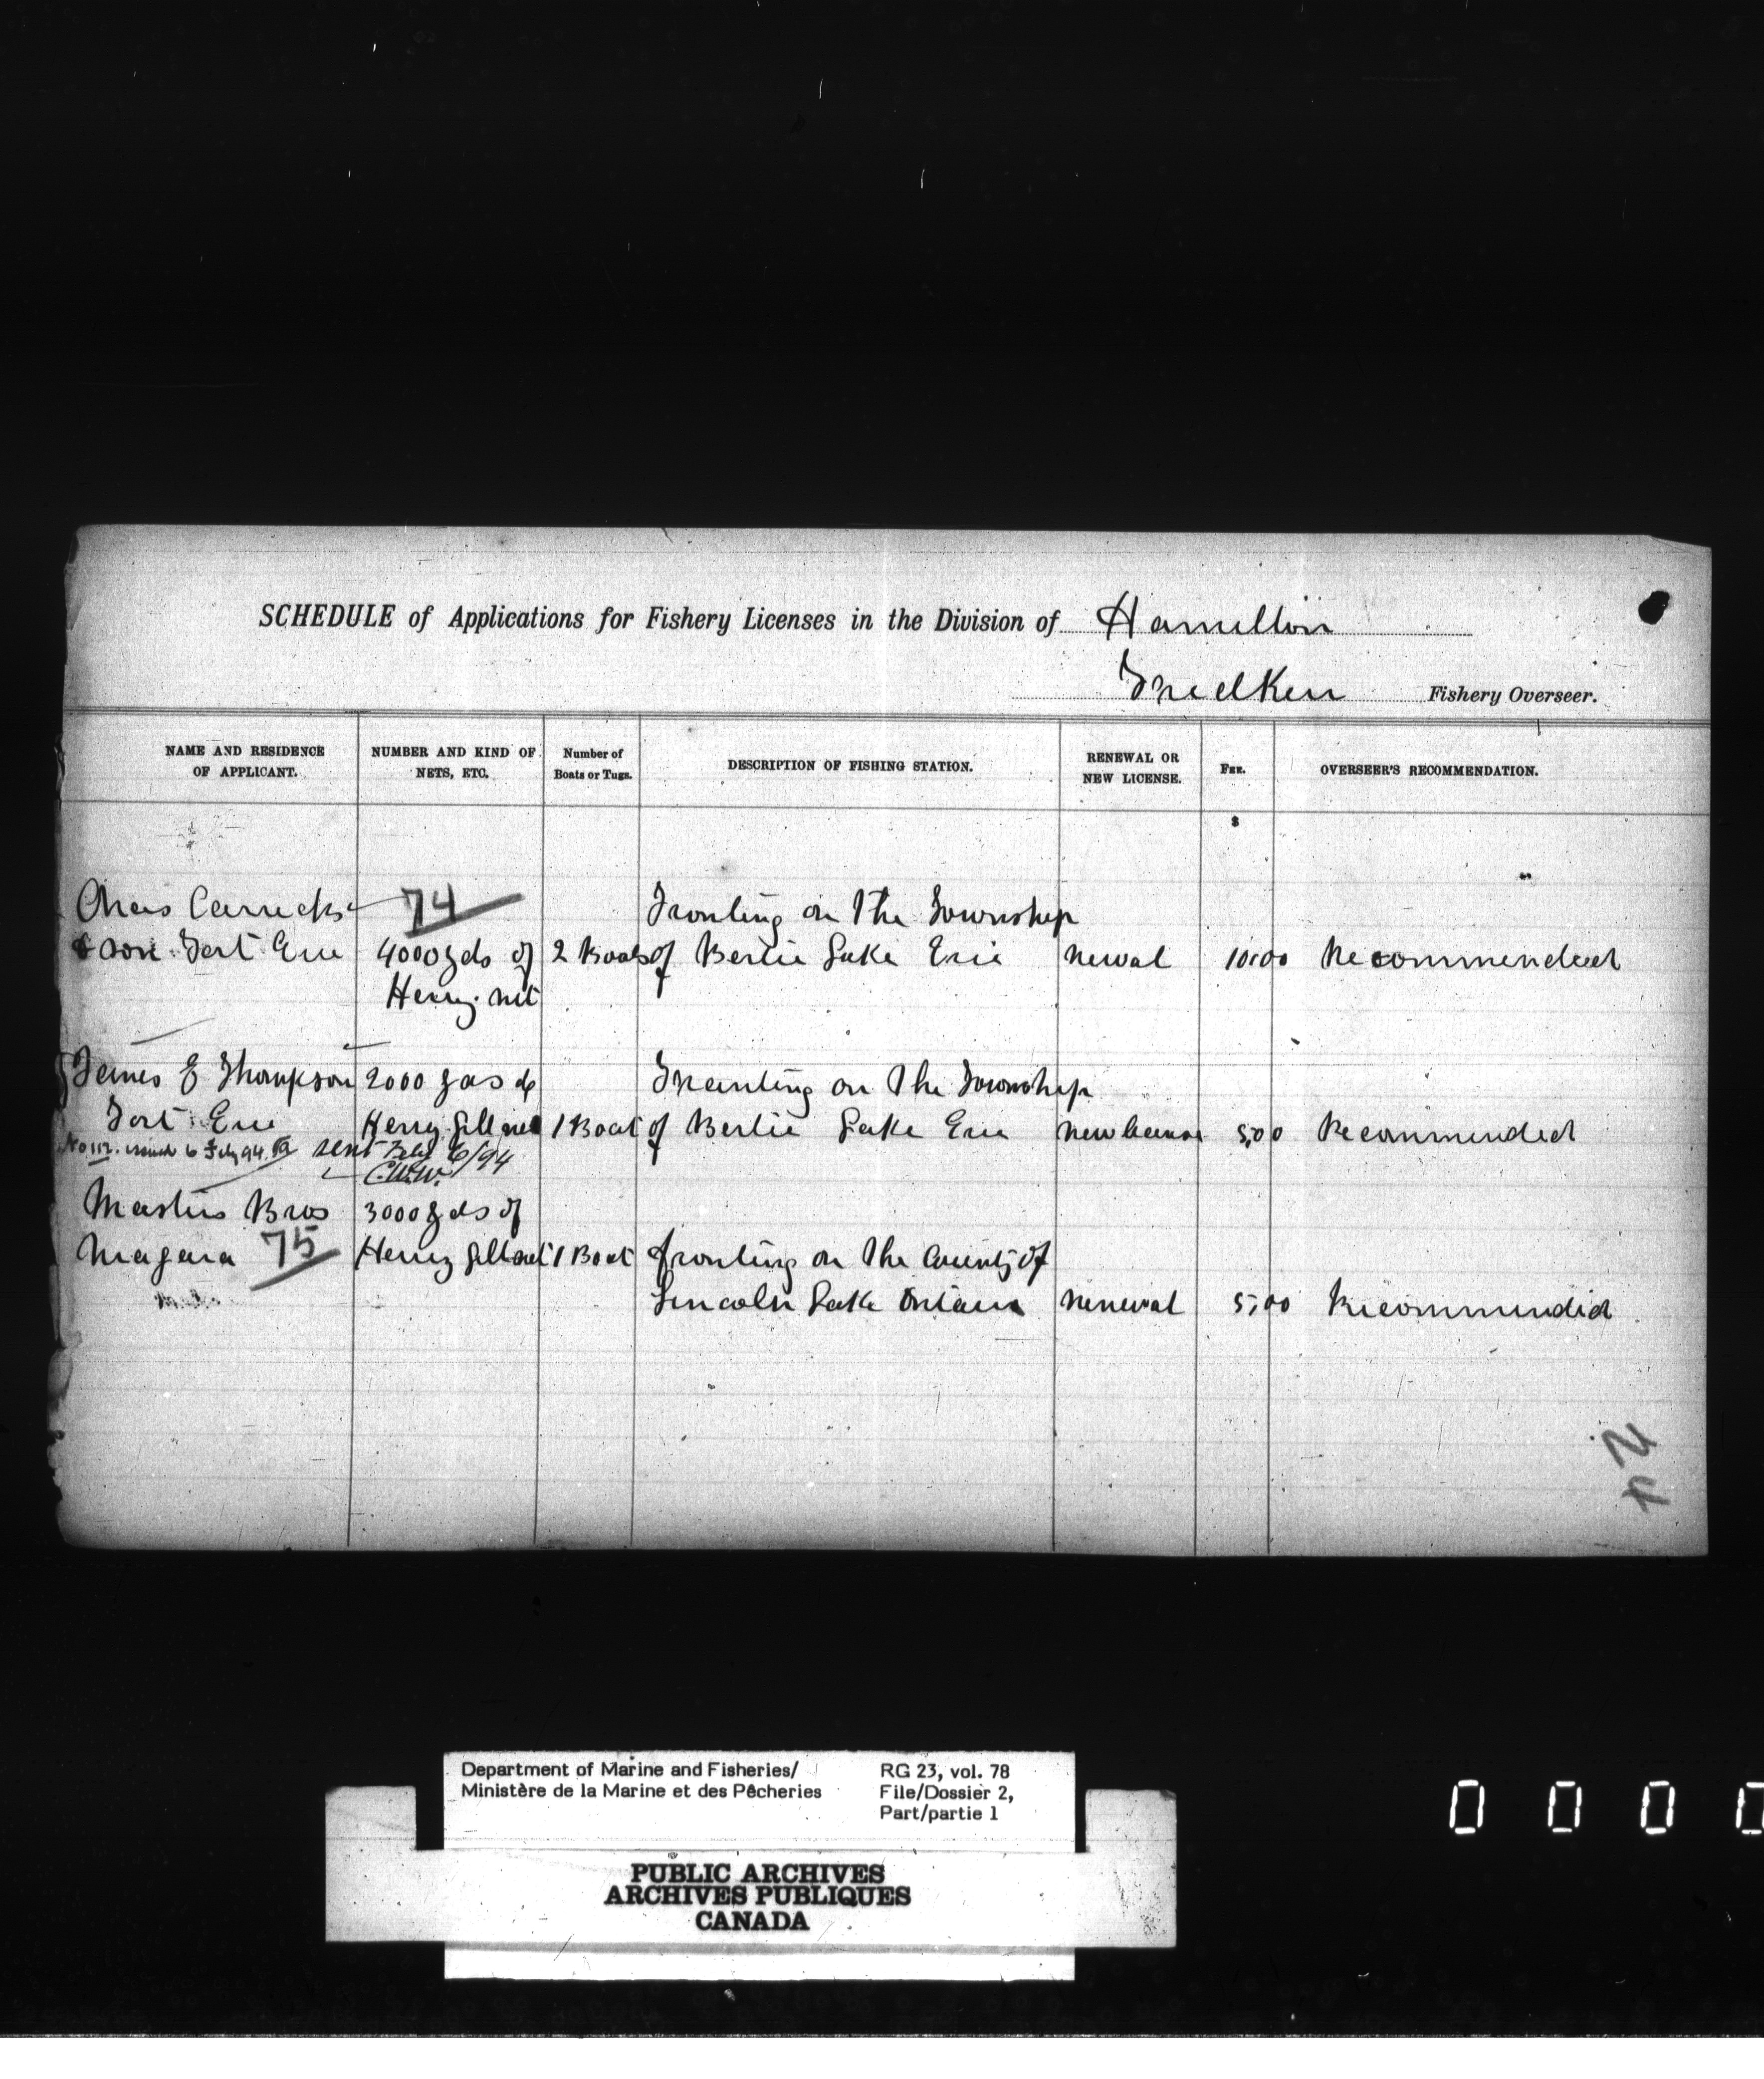 SCHEDULE of Applications for Fishery Licenses in the Division of Hamilton
Fred Kerr Fishery Overseer.
NAME AND RESIDENCE OF APPLICANT.
NUMBER AND KIND OF NETS, ETC.
Number of Boats or Tugs.
DESCRIPTION OF FISHING STATION.
RENEWAL OR NEW LICENSE.
FEE.
OVERSEER'S RECOMMENDATION.
$
Chas Carrick 74 Fronting on the Township
& son Fort Erie 4000 yds of 2 Boats of Bertie Lake Erie newal 10.00 Recommended
Herring net
James E Thompson 2000 yds of Fronting on the Township
Fort Erie Herring Gill net 1 Boat of Bertie Lake Erie new license 5.00 Recommended
No 112. issued 6 Feby 94. sent Feby 6/94
C.W.W.
Masters Bros 3000 yds of
Niagara 75 Herring Gill net 1 Boat fronting on the County of
Lincoln Lake Ontario renewal 5.00 Recommended
24
Department of Marine and Fisheries/ RG 23, vol. 78
Ministère de la Marine et des Pêcheries File/Dossier 2,
Part/partie 1
PUBLIC ARCHIVES
ARCHIVES PUBLIQUES
CANADA
0 0 0 0